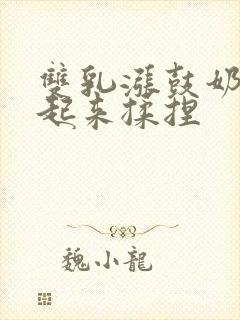 雙乳漲鼓奶
起来揉捏
魏小龍